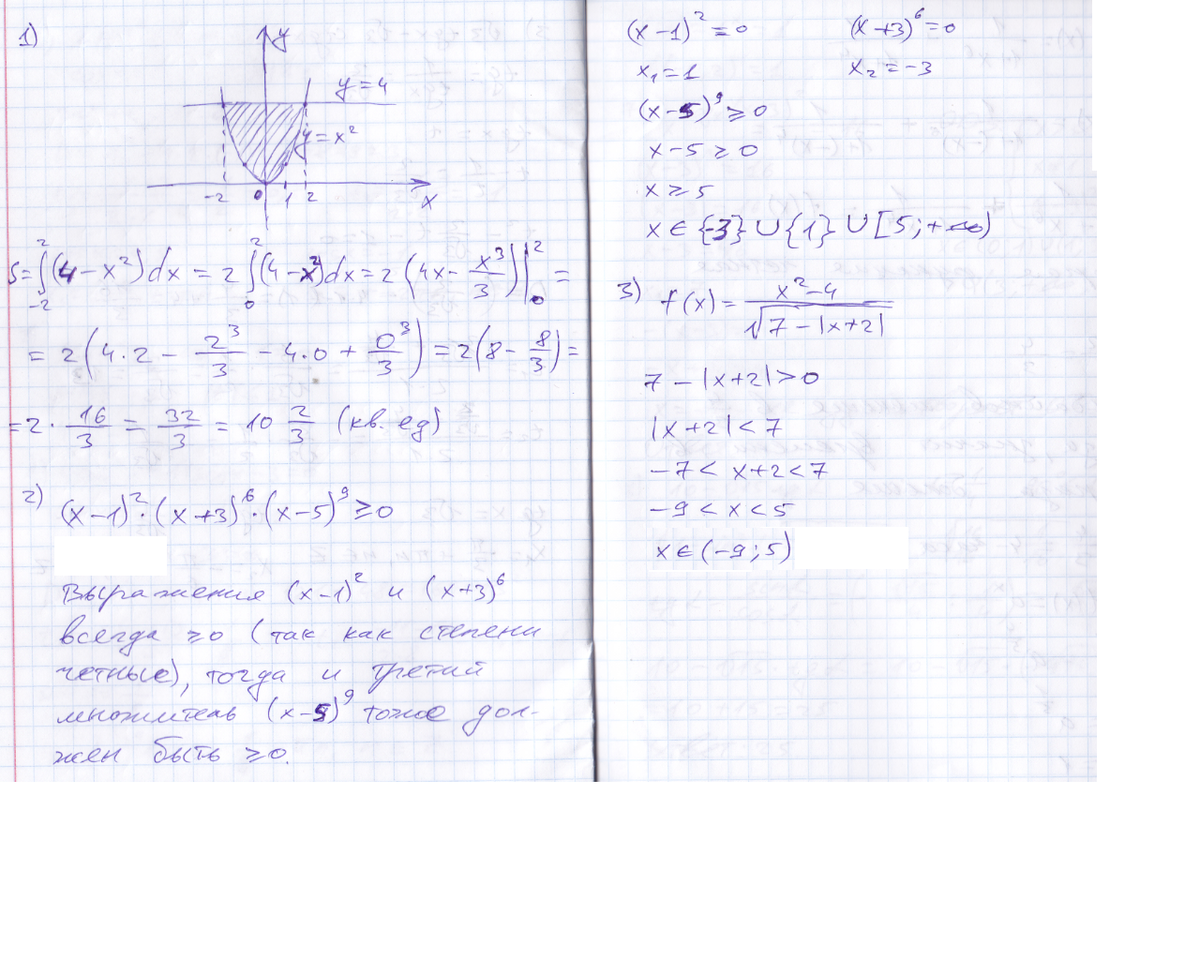 1)
y
y = 4
y = x²
-2 0 1 2 x
S = ∫₋₂² (4 - x²) dx = 2 ∫₀² (4 - x²) dx = 2 (4x - x³/3) |₀² =
= 2 (4·2 - 2³/3 - 4·0 + 0³/3) = 2 (8 - 8/3) =
= 2 · 16/3 = 32/3 = 10 2/3 (кв. ед)
2) (x-1)² · (x+3)⁶ · (x-5)⁹ ≥ 0
Выражения (x-1)² и (x+3)⁶
всегда ≥0 (так как степени
четные), тогда и третий
множитель (x-5)⁹ тоже дол-
жен быть ≥0.
(x-1)² = 0 (x+3)⁶ = 0
x₁ = 1 x₂ = -3
(x-5)⁹ ≥ 0
x-5 ≥ 0
x ≥ 5
x ∈ {-3} ∪ {1} ∪ [5; +∞)
3) f(x) = (x²-4)/√(7-|x+2|)
7 - |x+2| > 0
|x+2| < 7
-7 < x+2 < 7
-9 < x < 5
x ∈ (-9; 5)